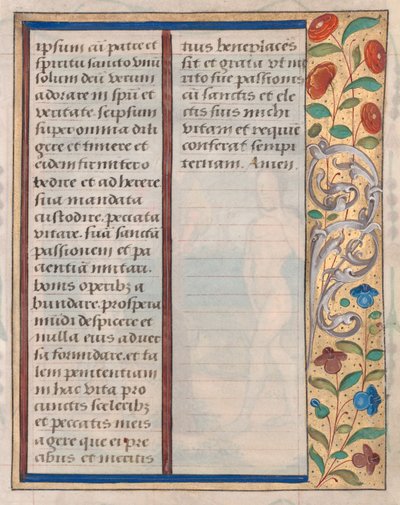 ipsum cū patre et
spiritu sancto vnū
solum deū verum
adorare in spū et
veritate. seipsum
super omnia dili
gere et timere et
eidem firmiter o
bedire et ad herere.
sua mandata
custodire. peccata
vitare. suā sanctā
passionem et pa
cientiā imitari.
bonis operibꝫ a
bundare. prospera
mūdi despicere et
nulla eius aduer
sa formidare. et ta
lem penitentiam
in hac vita pro
cunctis sceleribꝫ
et peccatis meis
agere que ei pre
cibus et meritis
tuis beneplaceꝭ
sit et grata vt me
rito sue passionis
cū sanctis et ele
ctis suis michi
vitam et requiē
conferat sempi
ternam. Amen.